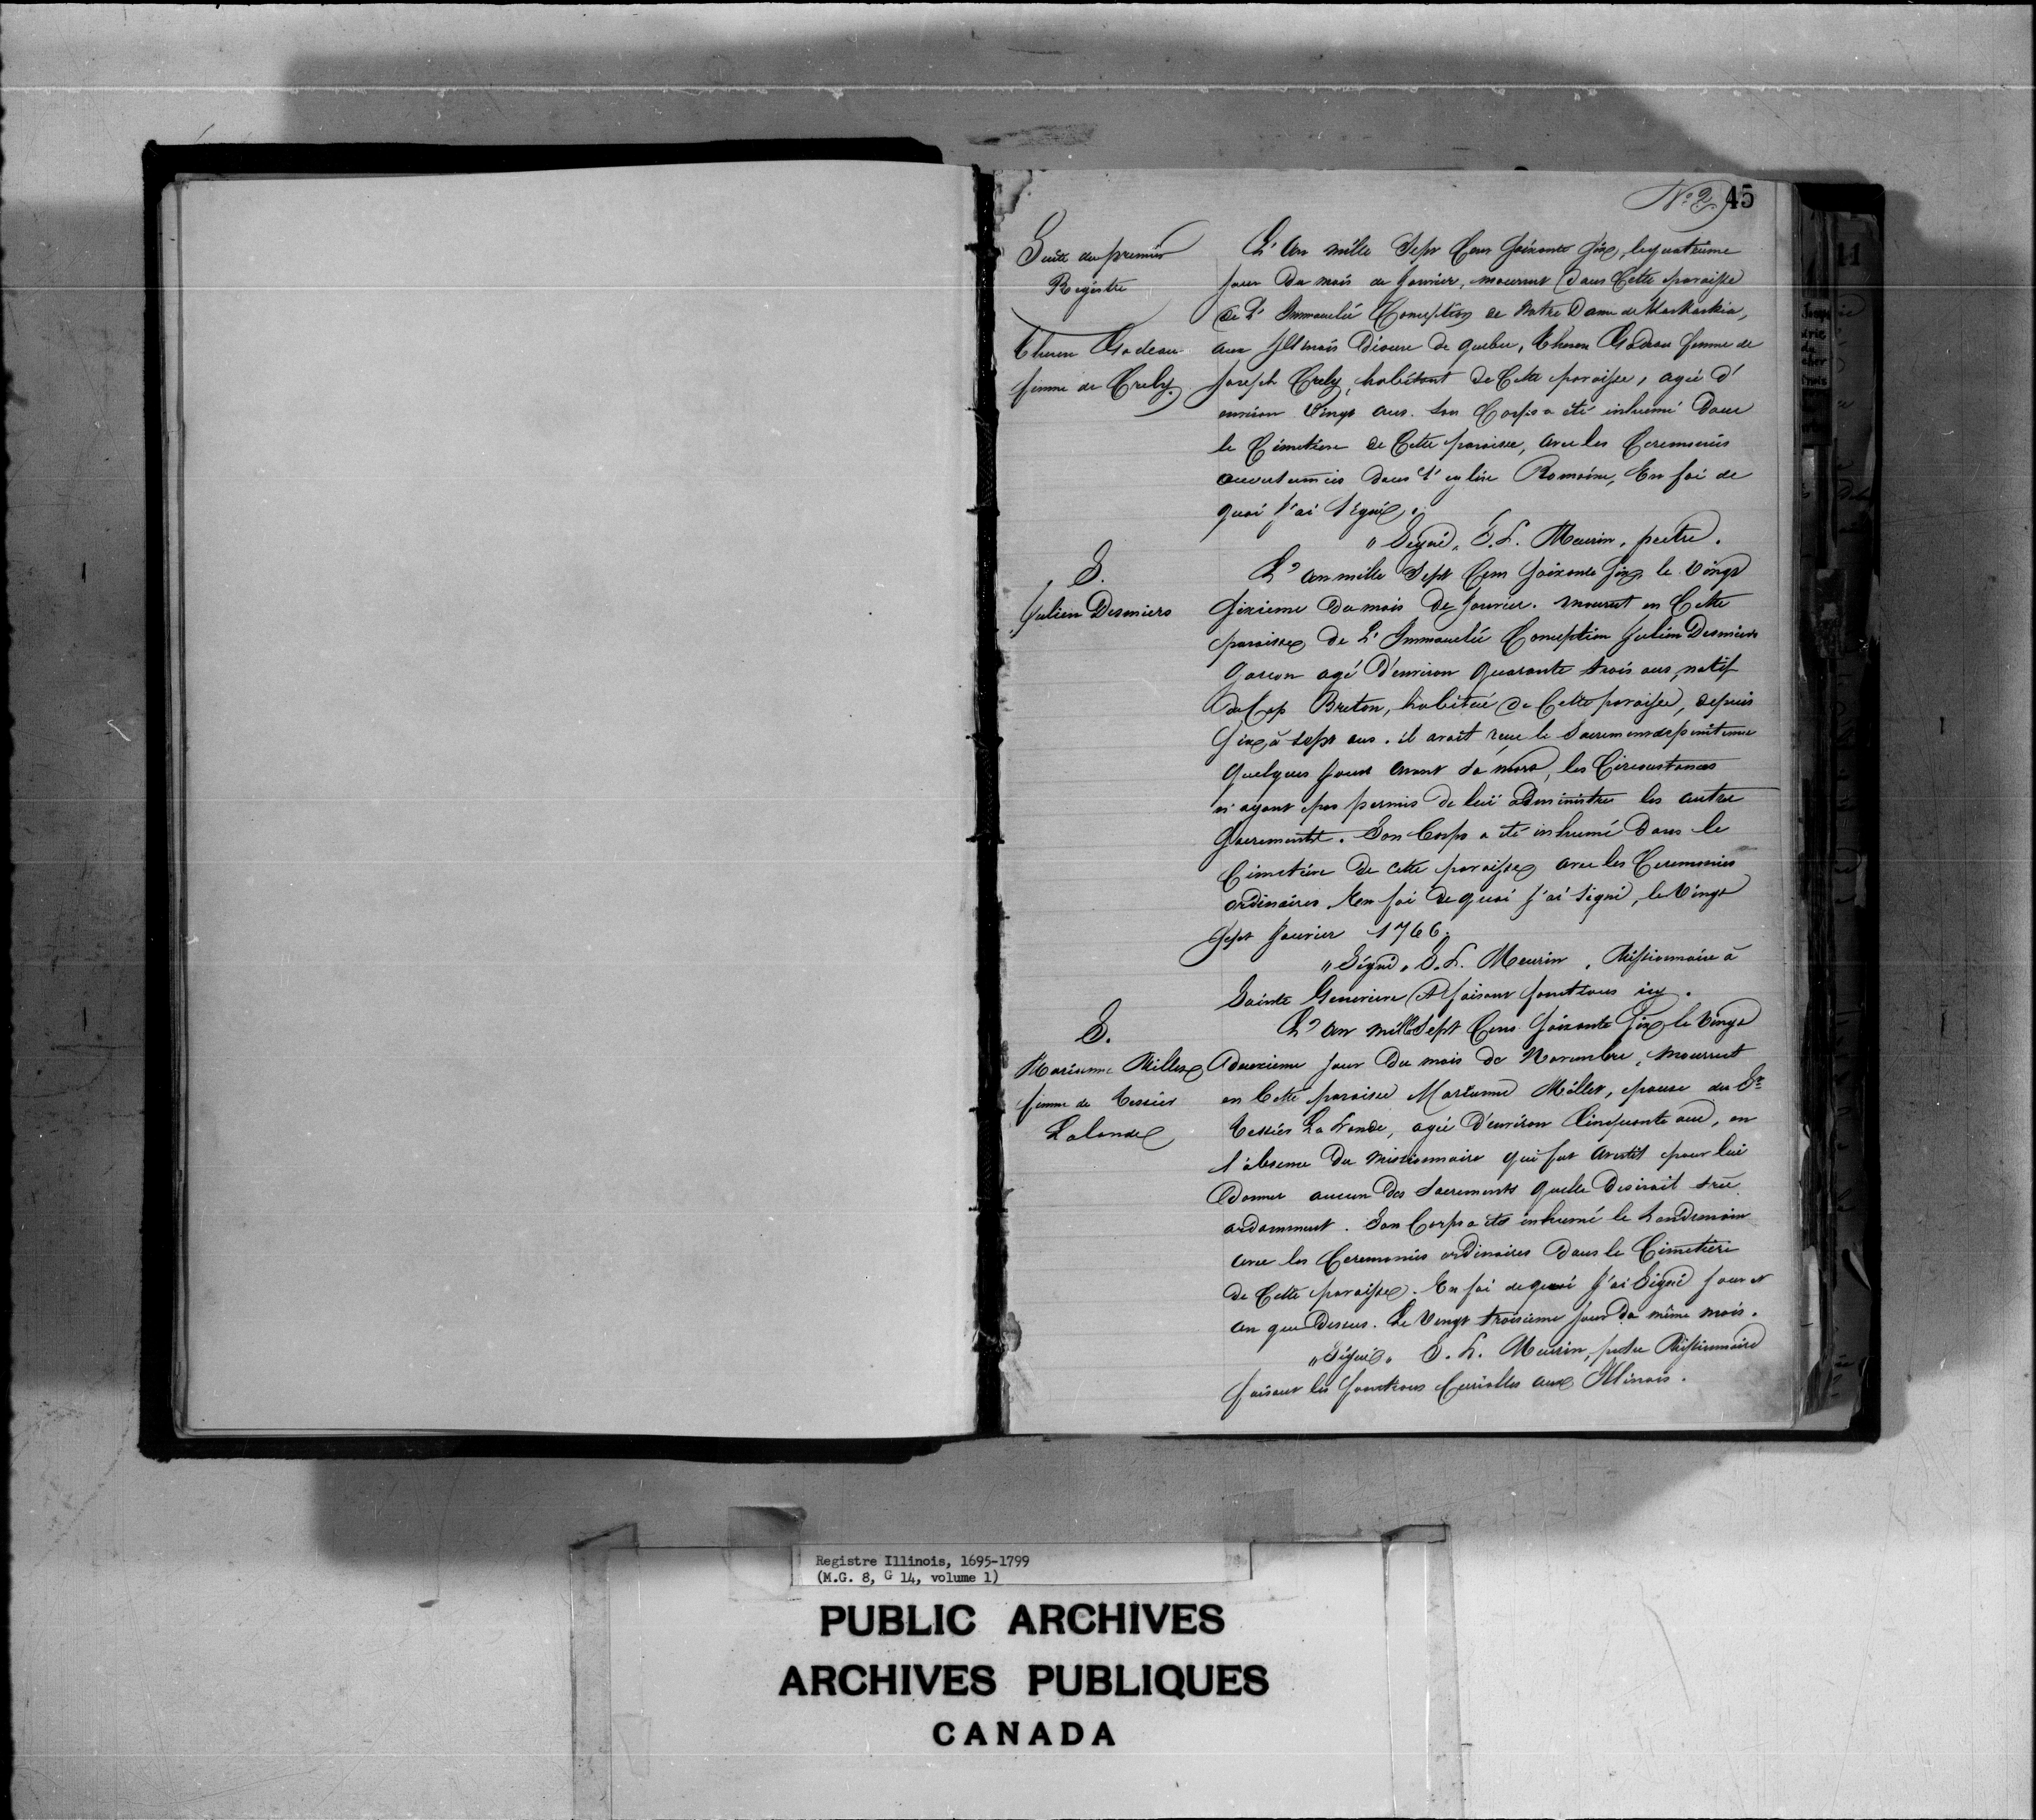 Nº 2 45
Suite du premier
Régistre
Therese Godeau
femme de Crely.
L' An mille Sept Cens Soixante Six, le quatrieme
jour du mois de Janvier, mourrut dans Cette paroisse
de L' Immaculée Conception de Notre Dame de Kaskaskia,
aux Illinois Diocese de quebec, Therese Godeau femme de
Joseph Crely, habitant de Cette paroisse, agée d'
environ Vingt ans. Son Corps a été inhumé Dans
le Cimetiere de Cette paroisse, avec les Ceremonies
accoutumées dans l' eglise Romaine, En foi de
quoi J'ai Signé.
" Signé, S. L. Meurin, pretre.
S.
Julien Desmiers
L' an mille Sept Cens Soixante Six, le Vingt
Sixieme du mois de Janvier. mourut en Cette
paroisse de L' Immaculée Conception Julien Desmiers
Garcon agé D'environ Quarante trois ans, natif
du Cap Breton, habitué de Cette paroisse, depuis
Six à Sept ans. il avoit reçu le Sacrement de penitence
Quelques jours avant Sa mort, les Circonstances
n' ayant pas permis de lui administre les autre
Sacrements. Son Corps a été inhumé Dans le
Cimetiere de cette paroisse avec les Ceremonies
ordinaires. En foi de quoi j'ai Signé, le Vingt
Sept Janvier 1766.
" Signé " S. L. Meurin, Missionnaire à
Sainte Genevieve et faisant fonctions icy.
S.
Marianne Millet
femme de Tessier
Lalonde
L' an mille Sept Cens Soixante Six le Vingt
deuxieme jour du mois de Novembre, mourrut
en Cette paroisse Marianne Millet, epouse du Sr
Tessier La Londe, agée D'environ Cinquante ans, en
l'absence du missionnaire qui fut avertit pour lui
Donner aucun des Sacrements quelle Desiroit tres
ardamment. Son Corps a été inhumé le Landemain
avec les Ceremonies ordinaires dans le Cimetiere
de Cette paroisse. En foi de quoi J'ai Signé jour et
an que Dessus. Le Vingt troisieme jour du même mois.
" Signé " S. L. Meurin, pretre Missionnaire
faisant les fonctions Curialles aux Illinois.
Registre Illinois, 1695-1799
(M.G. 8, G 14, volume 1)
PUBLIC ARCHIVES
ARCHIVES PUBLIQUES
CANADA